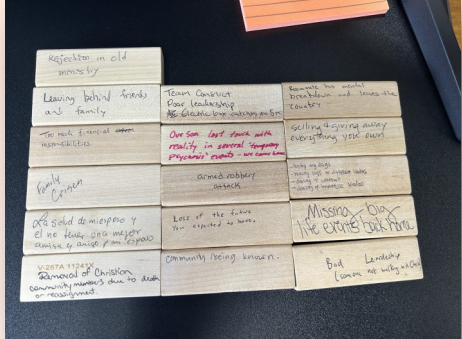 Rejection in old
ministry
Leaving behind friends
and family
Too much financial
responsibilities
Family
Origen
La salud de mi esposo y
el no tener una mejor
amiga y amigo p/mi esposo
V-267A 11241X
Removal of Christian
community members due to death
or reassignment.
Team Conduct
Poor leadership
Electric box catches on fire
Our son lost touch with
reality in several 'temporary
psychosis' events - we came home
armed robbery
attack
Loss of the future
you expected to have.
Community/being known.
Roommate has mental
breakdown and leaves the
country
Selling & giving away
everything you own
Missing big
life events back home
Bad Leadership
(someone not walking w/